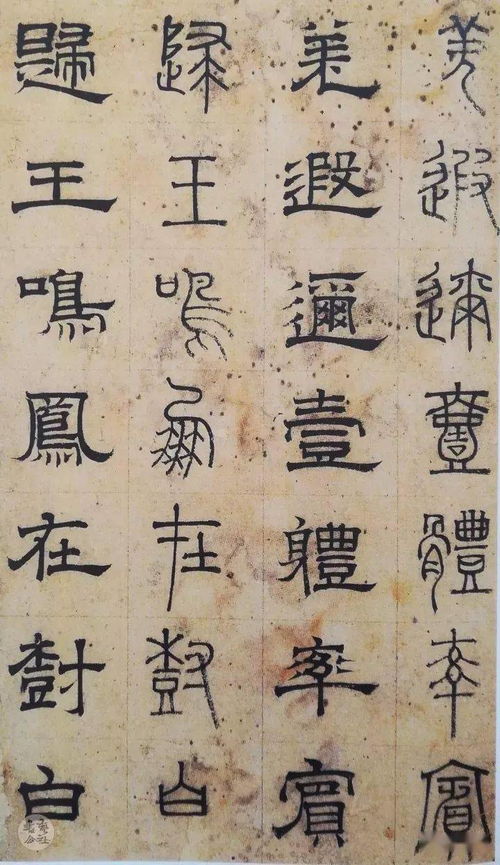 羌遐邇壹體率賓
羌遐邇壹體率賓
歸王鳴鳳在樹白
歸王鳴鳳在樹白